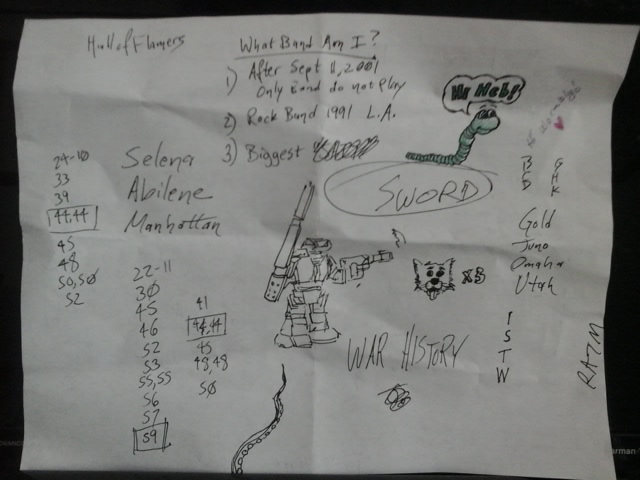 Hall of Flamers
What Band Am I?
1) After Sept 11, 2001
Only Band do not Play
2) Rock Band 1991 L.A.
3) Biggest
Hi Heb!
SWORD
24-10
33
39
44,44
45
48
50,50
52
Selena
Abilene
Manhattan
22-11
30
45
46
52
53
55,55
56
57
59
41
44,44
45
48,48
50
x3
WAR HISTORY
B G
C H
D K
Gold
Juno
Omaha
Utah
I
S
T
W
RATM